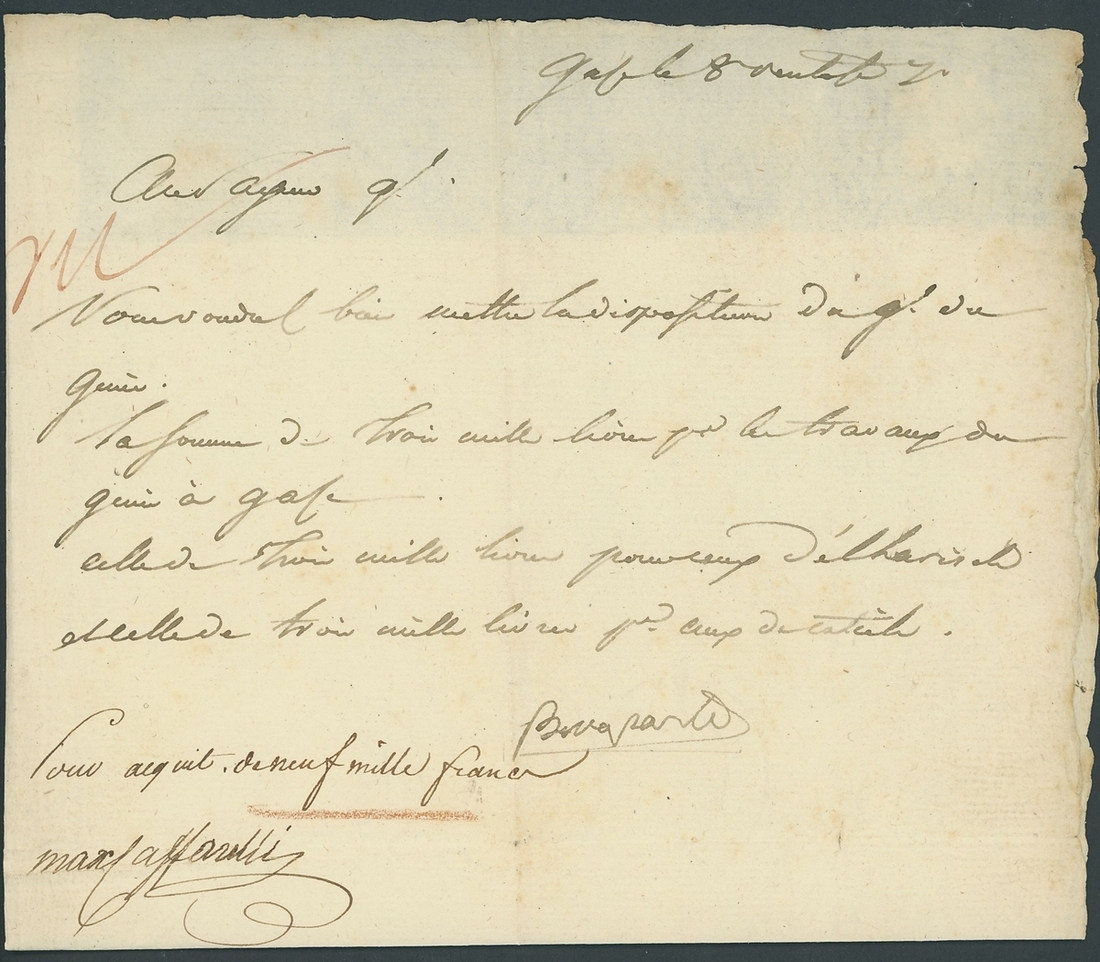 gase le 8 ventose 7.
Au payeur gl.
Vous voudrez bien mettre la disposition du gl. du
génie.
la somme de trois mille livres pr les travaux du
génie à gase
celle de trois mille livres pour ceux d'él harisch
et celle de trois mille livres pr ceux de catieh.
Bonaparte
Pour acquit. de neuf mille francs
max Caffarelli